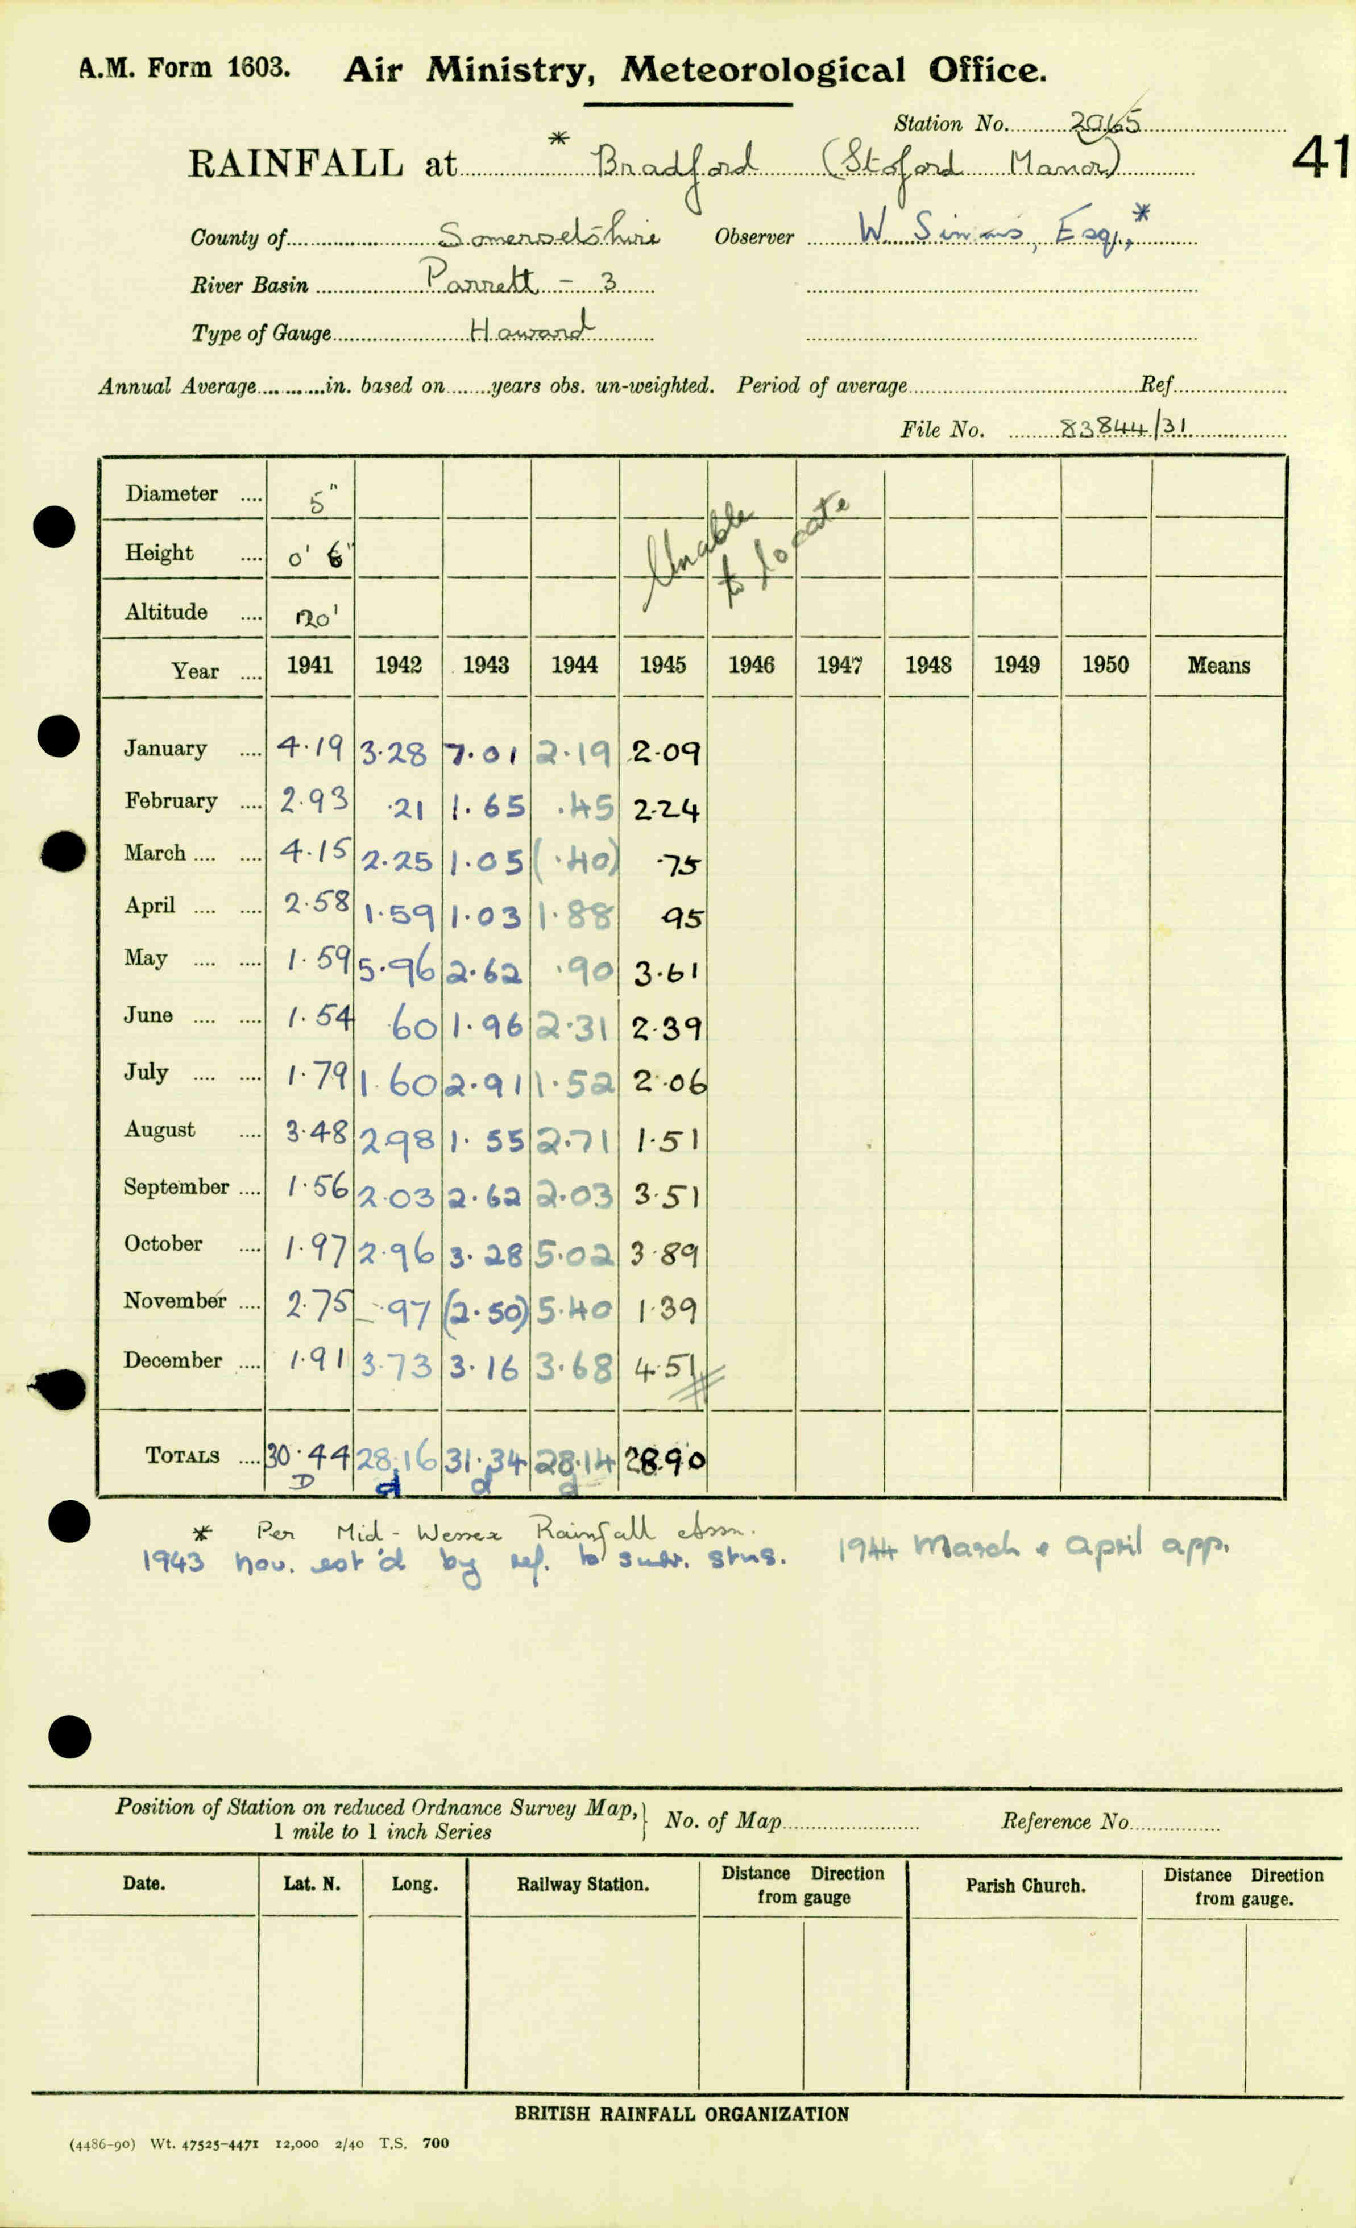 A.M. Form 1603. Air Ministry, Meteorological Office.
Station No. 2965
41
RAINFALL at * Bradford (Stoford Manor)
County of Somersetshire Observer W. Simms, Esq., *
River Basin Parrett - 3
Type of Gauge Howard
Annual Average in. based on years obs. un-weighted. Period of average Ref.
File No. 83844/31
Diameter 5"
Height 0' 6"
Altitude 120'
Unable to locate
Year 1941 1942 1943 1944 1945 1946 1947 1948 1949 1950 Means
January 4.19 3.28 7.01 2.19 2.09
February 2.93 .21 1.65 .45 2.24
March 4.15 2.25 1.05 (.40) .75
April 2.58 1.59 1.03 1.88 95
May 1.59 5.96 2.62 .90 3.61
June 1.54 60 1.96 2.31 2.39
July 1.79 1.60 2.91 1.52 2.06
August 3.48 2.98 1.55 2.71 1.51
September 1.56 2.03 2.62 2.03 3.51
October 1.97 2.96 3.28 5.02 3.89
November 2.75 .97 (2.50) 5.40 1.39
December 1.91 3.73 3.16 3.68 4.51
TOTALS 30.44 28.16 31.34 28.14 28.90
D d d d
* Per Mid-Wessex Rainfall Assn.
1943 Nov. est'd by ref. to surr. stns. 1944 March & April app.
Position of Station on reduced Ordnance Survey Map, 1 mile to 1 inch Series No. of Map Reference No.
Date. Lat. N. Long. Railway Station. Distance Direction from gauge Parish Church. Distance Direction from gauge.
BRITISH RAINFALL ORGANIZATION
(4486-90) Wt. 47525-4471 12,000 2/40 T.S. 700